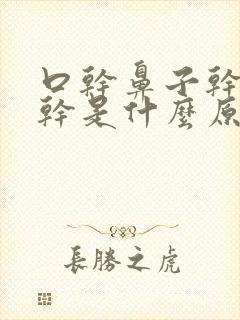 口幹鼻子幹
幹是什麼原
長勝之虎